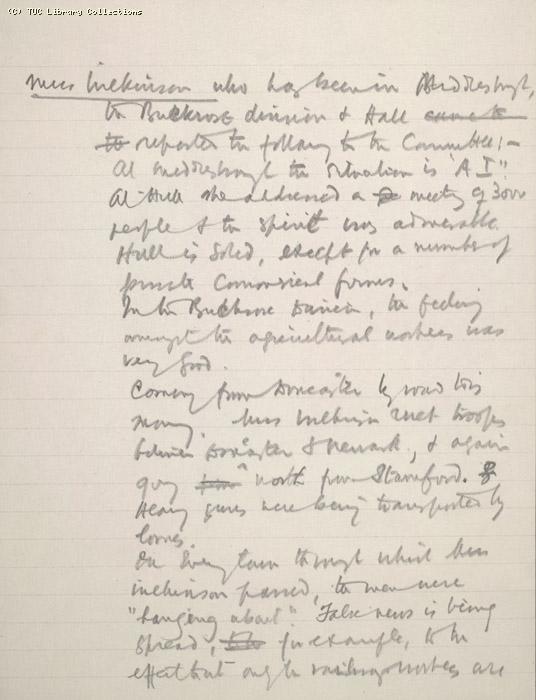 (C) TUC Library Collections
Miss Wilkinson who has been in Middlesbrough,
the Buckrose division & Hull came to
to reported the following to the Committee:-
At Middlesbrough the situation is "A I".
At Hull she addressed a meeting of 3000
people & the spirit was admirable.
Hull is solid, except for a number of
private Commercial firms.
In the Buckrose Division, the feeling
amongst the agricultural workers was
very good.
Coming from Doncaster by road this
morning Miss Wilkinson met troops
between Doncaster & Newark, & again
going from north from Stamford.
Heavy guns were being transported by
lorries.
In every town through which Miss
Wilkinson passed, the men were
"hanging about". False news is being
spread, for example, to the
effect that only railway workers are